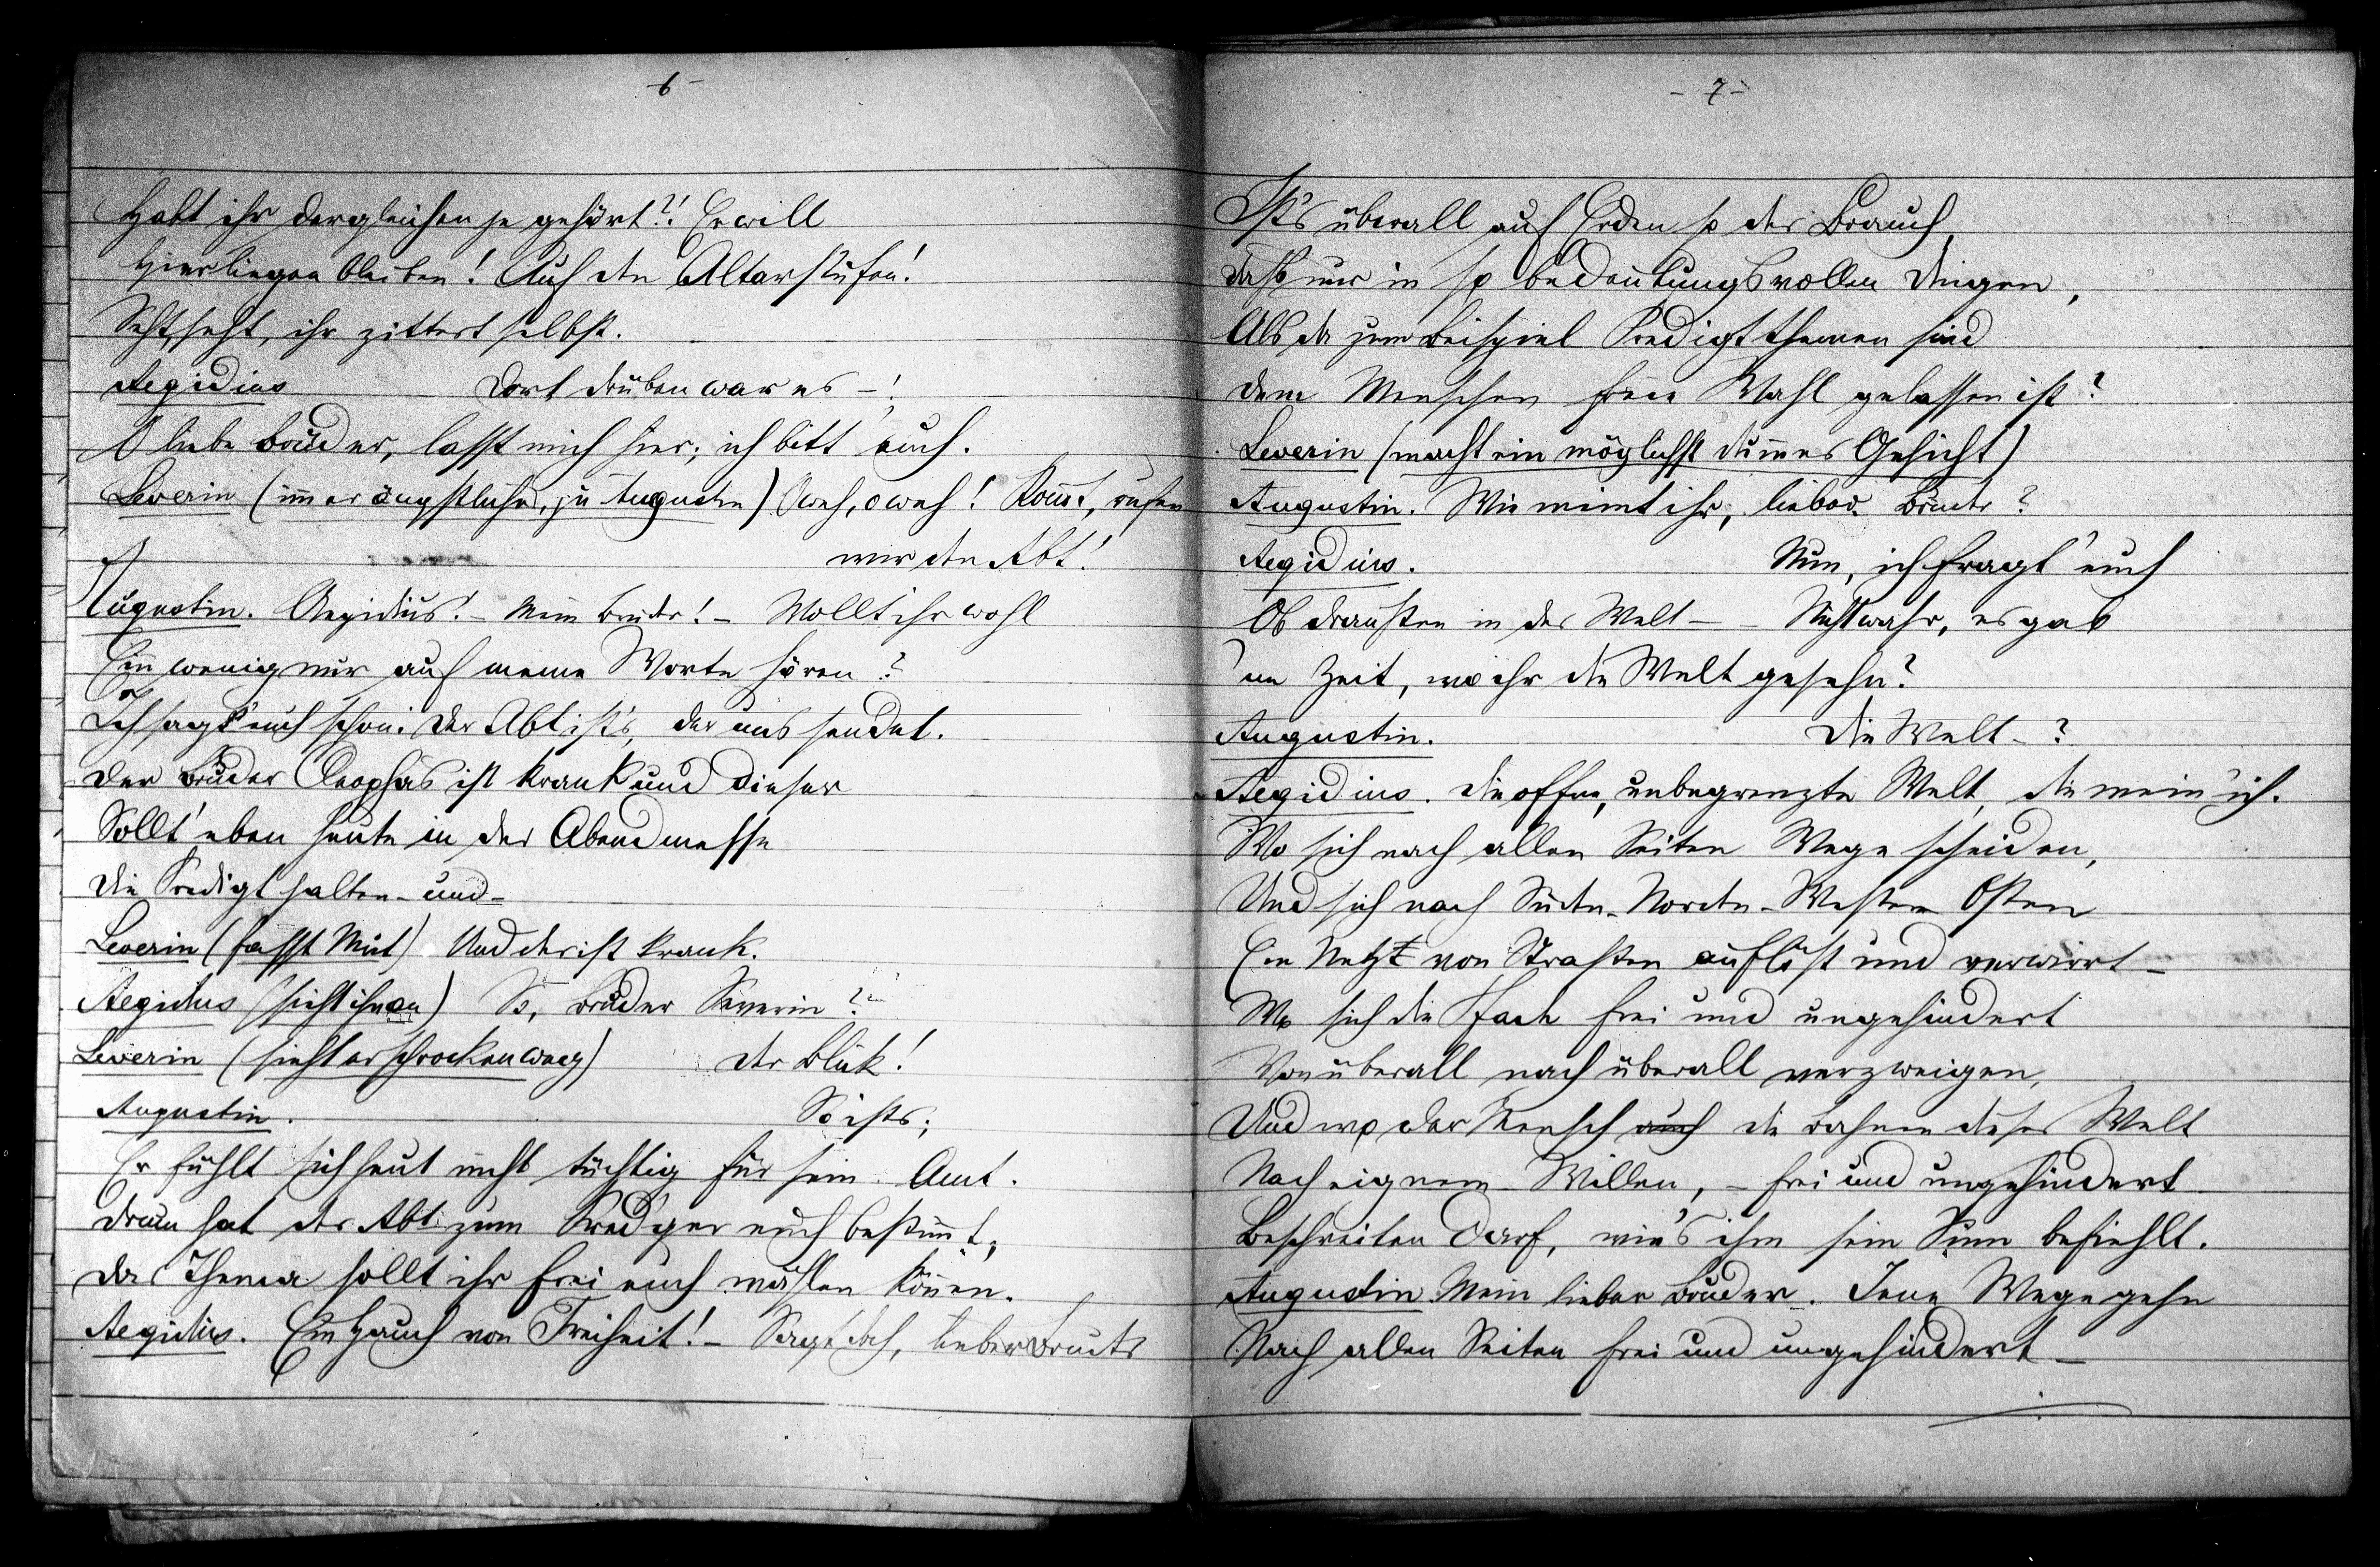 -6-
Habt ihr dergleichen je gehört?! Er will
Hier liegen bleiben! Auf den Altarstufen!
Seht, seht, ihr zittert selbst.
Aegidius Dort drüben war es -!
O liebe Brüder, lasst mich hier; ich bitt' euch.
Severin (immer ängstlicher, zu Augustin) O weh, o weh! Kommt, rufen
wir den Abt!
Augustin. Aegidius! - Mein Bruder! - Wollt ihr wohl
Ein wenig nur auf meine Worte hören?
Ich sagt' euch schon: Der Abt ist's, der uns sendet.
Der Bruder Cleophas ist krank und dieser
Sollt' eben heute in der Abendmesse
Die Predigt halten - und -
Severin (fasst Mut) Und der ist krank.
Aegidius (sieht ihn an) So, Bruder Severin?
Severin (sieht erschrocken weg) Der Blick!
Augustin. So ists;
Er fühlt sich heut nicht tüchtig für sein Amt.
Drum hat der Abt zum Pred'ger euch bestimmt;
Das Thema sollt ihr frei euch wählen können.
Aegidius. Ein Hauch von Freiheit! - Sagt doch, lieber Bruder
- 7 -
Ist's überall auf Erden so der Brauch,
Dass nur in so bedeutungsvollen Dingen,
Als da zum Beispiel Predigtthemen sind
Dem Menschen freie Wahl gelassen ist?
Severin (macht ein möglichst dummes Gesicht)
Augustin. Wie meint ihr, lieber Bruder?
Aegidius. Nun, ich fragt' euch
Ob draußen in der Welt - - Nicht wahr, es gab
'ne Zeit, wo ihr die Welt gesehn?
Augustin. Die Welt - ?
Aegidius. Die offne, unbegrenzte Welt, die mein' ich.
Wo sich nach allen Seiten Wege scheiden,
Und sich nach Süden - Norden - Westen Osten
Ein Netz von Straßen auflöst und verwirrt -
Wo sich die Pfade frei und ungehindert
Von überall nach überall verzweigen,
Und wo der Mensch auch die Bahnen dieser Welt
Nach eignem Willen, - frei und ungehindert
Beschreiten darf, wie's ihm sein Sinn befiehlt.
Augustin Mein lieber Bruder. Jene Wege gehn
Nach allen Seiten frei und ungehindert -